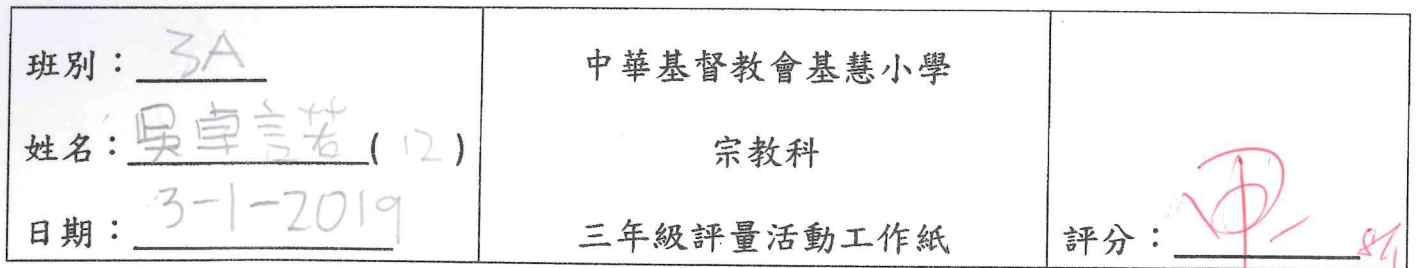 班別：3A
姓名：吳卓言若(12)
日期：3-1-2019
中華基督教會基慧小學
宗教科
三年級評量活動工作紙
評分：甲- 8/1